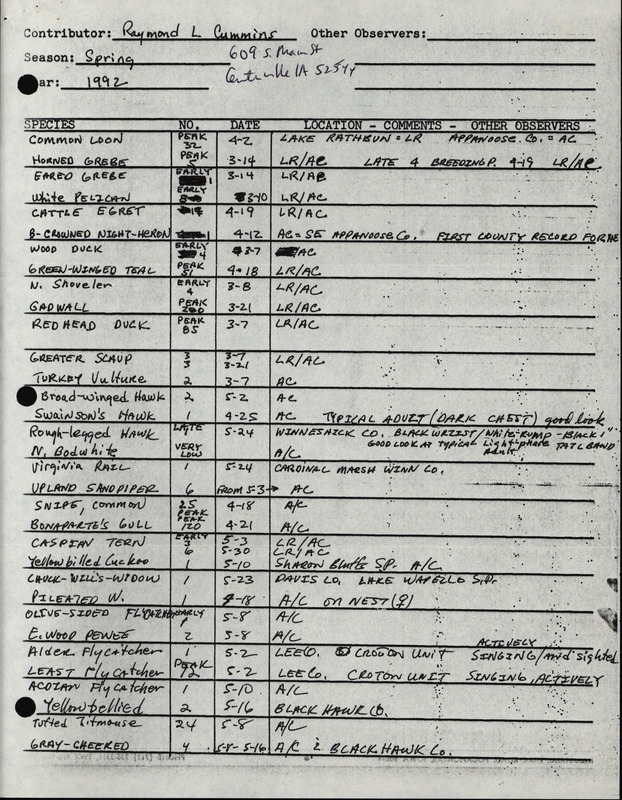 Contributor: Raymond L. Cummins Other Observers:
Season: Spring 609 S. Main St
ar: 1992 Centerville IA 52544
SPECIES NO. DATE LOCATION - COMMENTS - OTHER OBSERVERS
COMMON LOON PEAK 32 4-2 LAKE RATHBUN = LR APPANOOSE. CO. = AC
HORNED GREBE PEAK 5 3-14 LR/AC LATE 4 BREEDING P. 4-19 LR/AC
EARED GREBE EARLY 1 3-14 LR/AC
White PELICAN EARLY 3-10 LR/AC
CATTLE EGRET 14 4-19 LR/AC
B-CROWNED NIGHT-HERON 1 4-12 AC = SE APPANOOSE CO. FIRST COUNTY RECORD FOR ME
WOOD DUCK EARLY 4 3-7 AC
GREEN-WINGED TEAL PEAK 51 4-18 LR/AC
N. Shoveler EARLY 4 3-8 LR/AC
GADWALL PEAK 3-21 LR/AC
REDHEAD DUCK PEAK 85 3-7 LR/AC
GREATER SCAUP 3 3-7 LR/AC
3 3-21
TURKEY Vulture 2 3-7 AC
Broad-winged Hawk 2 5-2 AC
SWAINSON'S HAWK 1 4-25 AC TYPICAL ADULT (DARK CHEST) good look
Rough-legged HAWK LATE 1 5-24 WINNESHIEK CO. BLACK WRIST/White RUMP-BLACK
GOOD LOOK AT Typical Light phase TAIL BAND
N. Bobwhite VERY LOW A/C Adult
Virginia RAIL 1 5-24 CARDINAL MARSH WINN CO.
UPLAND SANDPIPER 6 FROM 5-3→ AC
SNIPE, common 25 PEAK 4-18 A/C
BONAPARTE'S GULL PEAK 120 4-21 A/C
CASPIAN TERN EARLY 3 5-3 LR/AC
6 5-30 LR/AC
Yellowbilled Cuckoo 1 5-10 Sharon Bluffs S.P. A/C
CHUCK-WILL'S-WIDOW 1 5-23 DAVIS CO. LAKE WAPELLO S.P.
PILEATED W. 1 4-18 A/C ON NEST (♀)
OLIVE-SIDED FLYCATCHER EARLY 1 5-8 A/C
E. WOOD PEWEE 2 5-8 A/C
ACTIVELY
Alder Flycatcher 1 5-2 LEE CO. CROTON UNIT SINGING/and sighted
LEAST Flycatcher PEAK 12 5-2 LEE CO. CROTON UNIT SINGING, ACTIVELY
ACDIAN Flycatcher 1 5-10 A/C
Yellowbellied 2 5-16 BLACK HAWK CO.
Tufted Titmouse 24 5-8 A/C
GRAY-CHEEKED 4 5-8-5-16 A/C & BLACK HAWK CO.